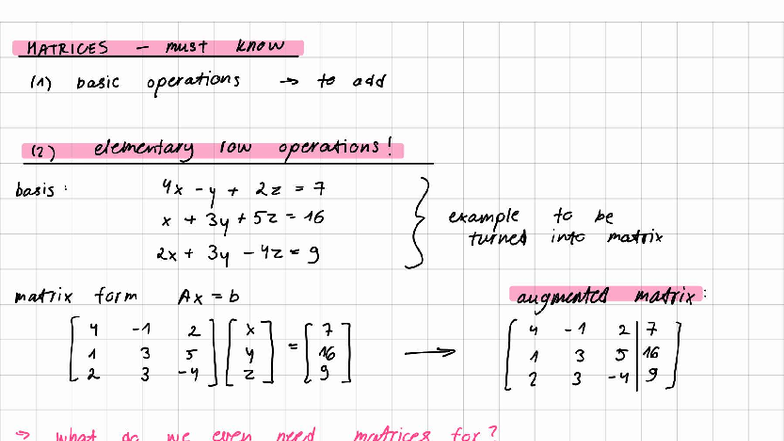 MATRICES – must know
(1) basic operations → to add
(2) elementary row operations!
basis:
4x - y + 2z = 7
x + 3y + 5z = 16
2x + 3y - 4z = 9
example to be
turned into matrix
matrix form Ax = b
[4 -1 2] [x] = [7]
[1 3 5] [y] = [16]
[2 3 -4] [z] = [9]
→
augmented matrix:
[4 -1 2 | 7]
[1 3 5 | 16]
[2 3 -4 | 9]
→ what do we even need matrices for?